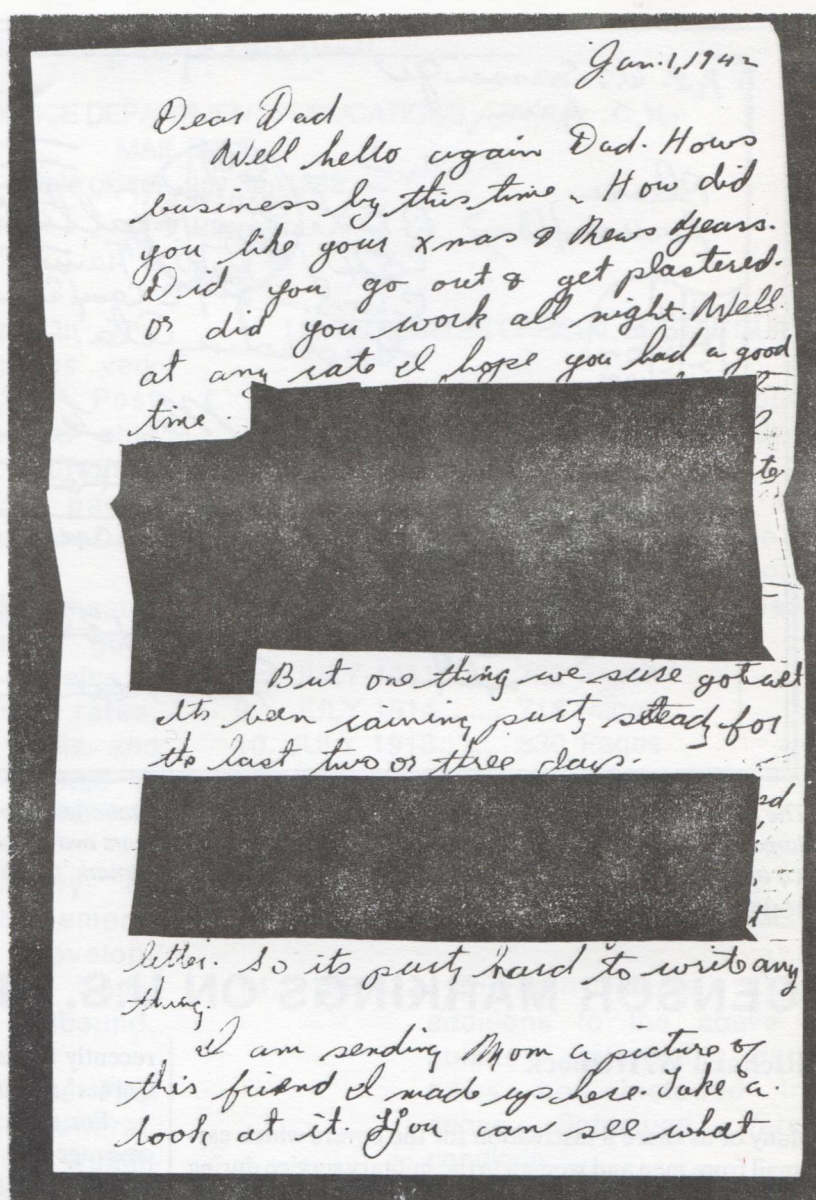 Jan. 1, 1942
Dear Dad
Well hello again Dad. Hows
business by this time. How did
you like your Xmas & News Years.
Did you go out & get plastered.
or did you work all night. Well
at any rate I hope you had a good
time.
But one thing we sure got wet
Its been raining purty steady for
the last two or three days.
letter. So its purty hard to write any
thing.
I am sending Mom a picture of
this friend I made up here. Take a
look at it. You can see what